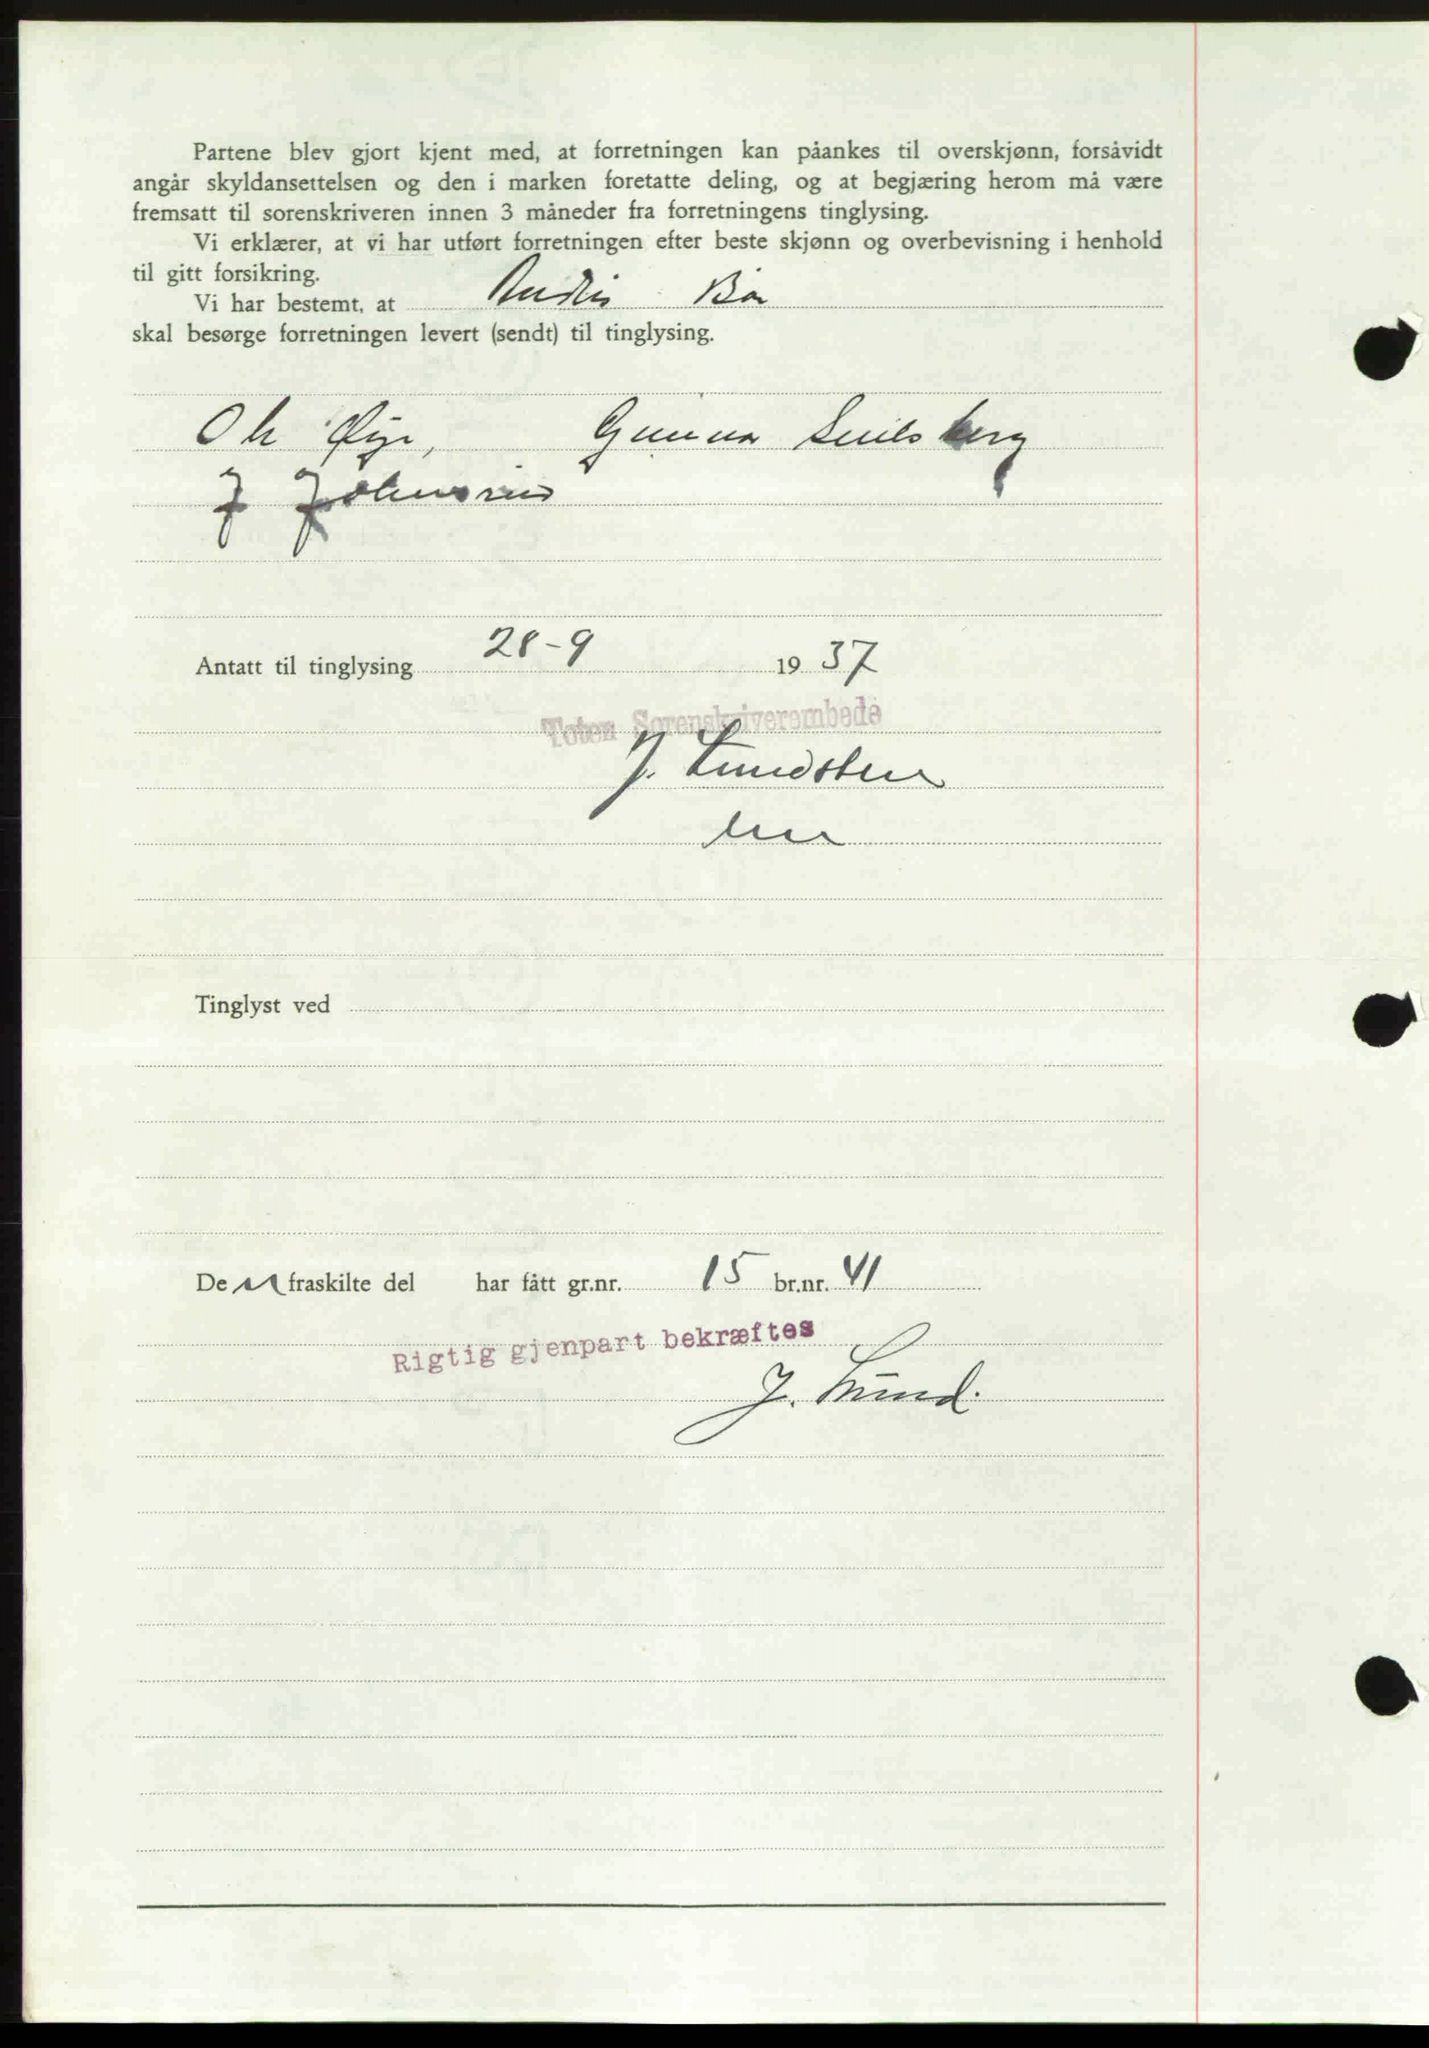 Partene blev gjort kjent med, at forretningen kan påankes til overskjønn, forsåvidt
angår skyldansettelsen og den i marken foretatte deling, og at begjæring herom må være
fremsatt til sorenskriveren innen 3 måneder fra forretningens tinglysing.
Vi erklærer, at vi har utført forretningen efter beste skjønn og overbevisning i henhold
til gitt forsikring.
Vi har bestemt, at
skal besørge forretningen levert (sendt) til tinglysing.
Gunnar
J Johnsrud
Antatt til tinglysing 28-9 19 37
Toten Sorenskriverembede
J. Lundsten
Tinglyst ved
De n fraskilte del har fått gr.nr. 15 br.nr. 41
Rigtig gjenpart bekræftes
J. Lund.